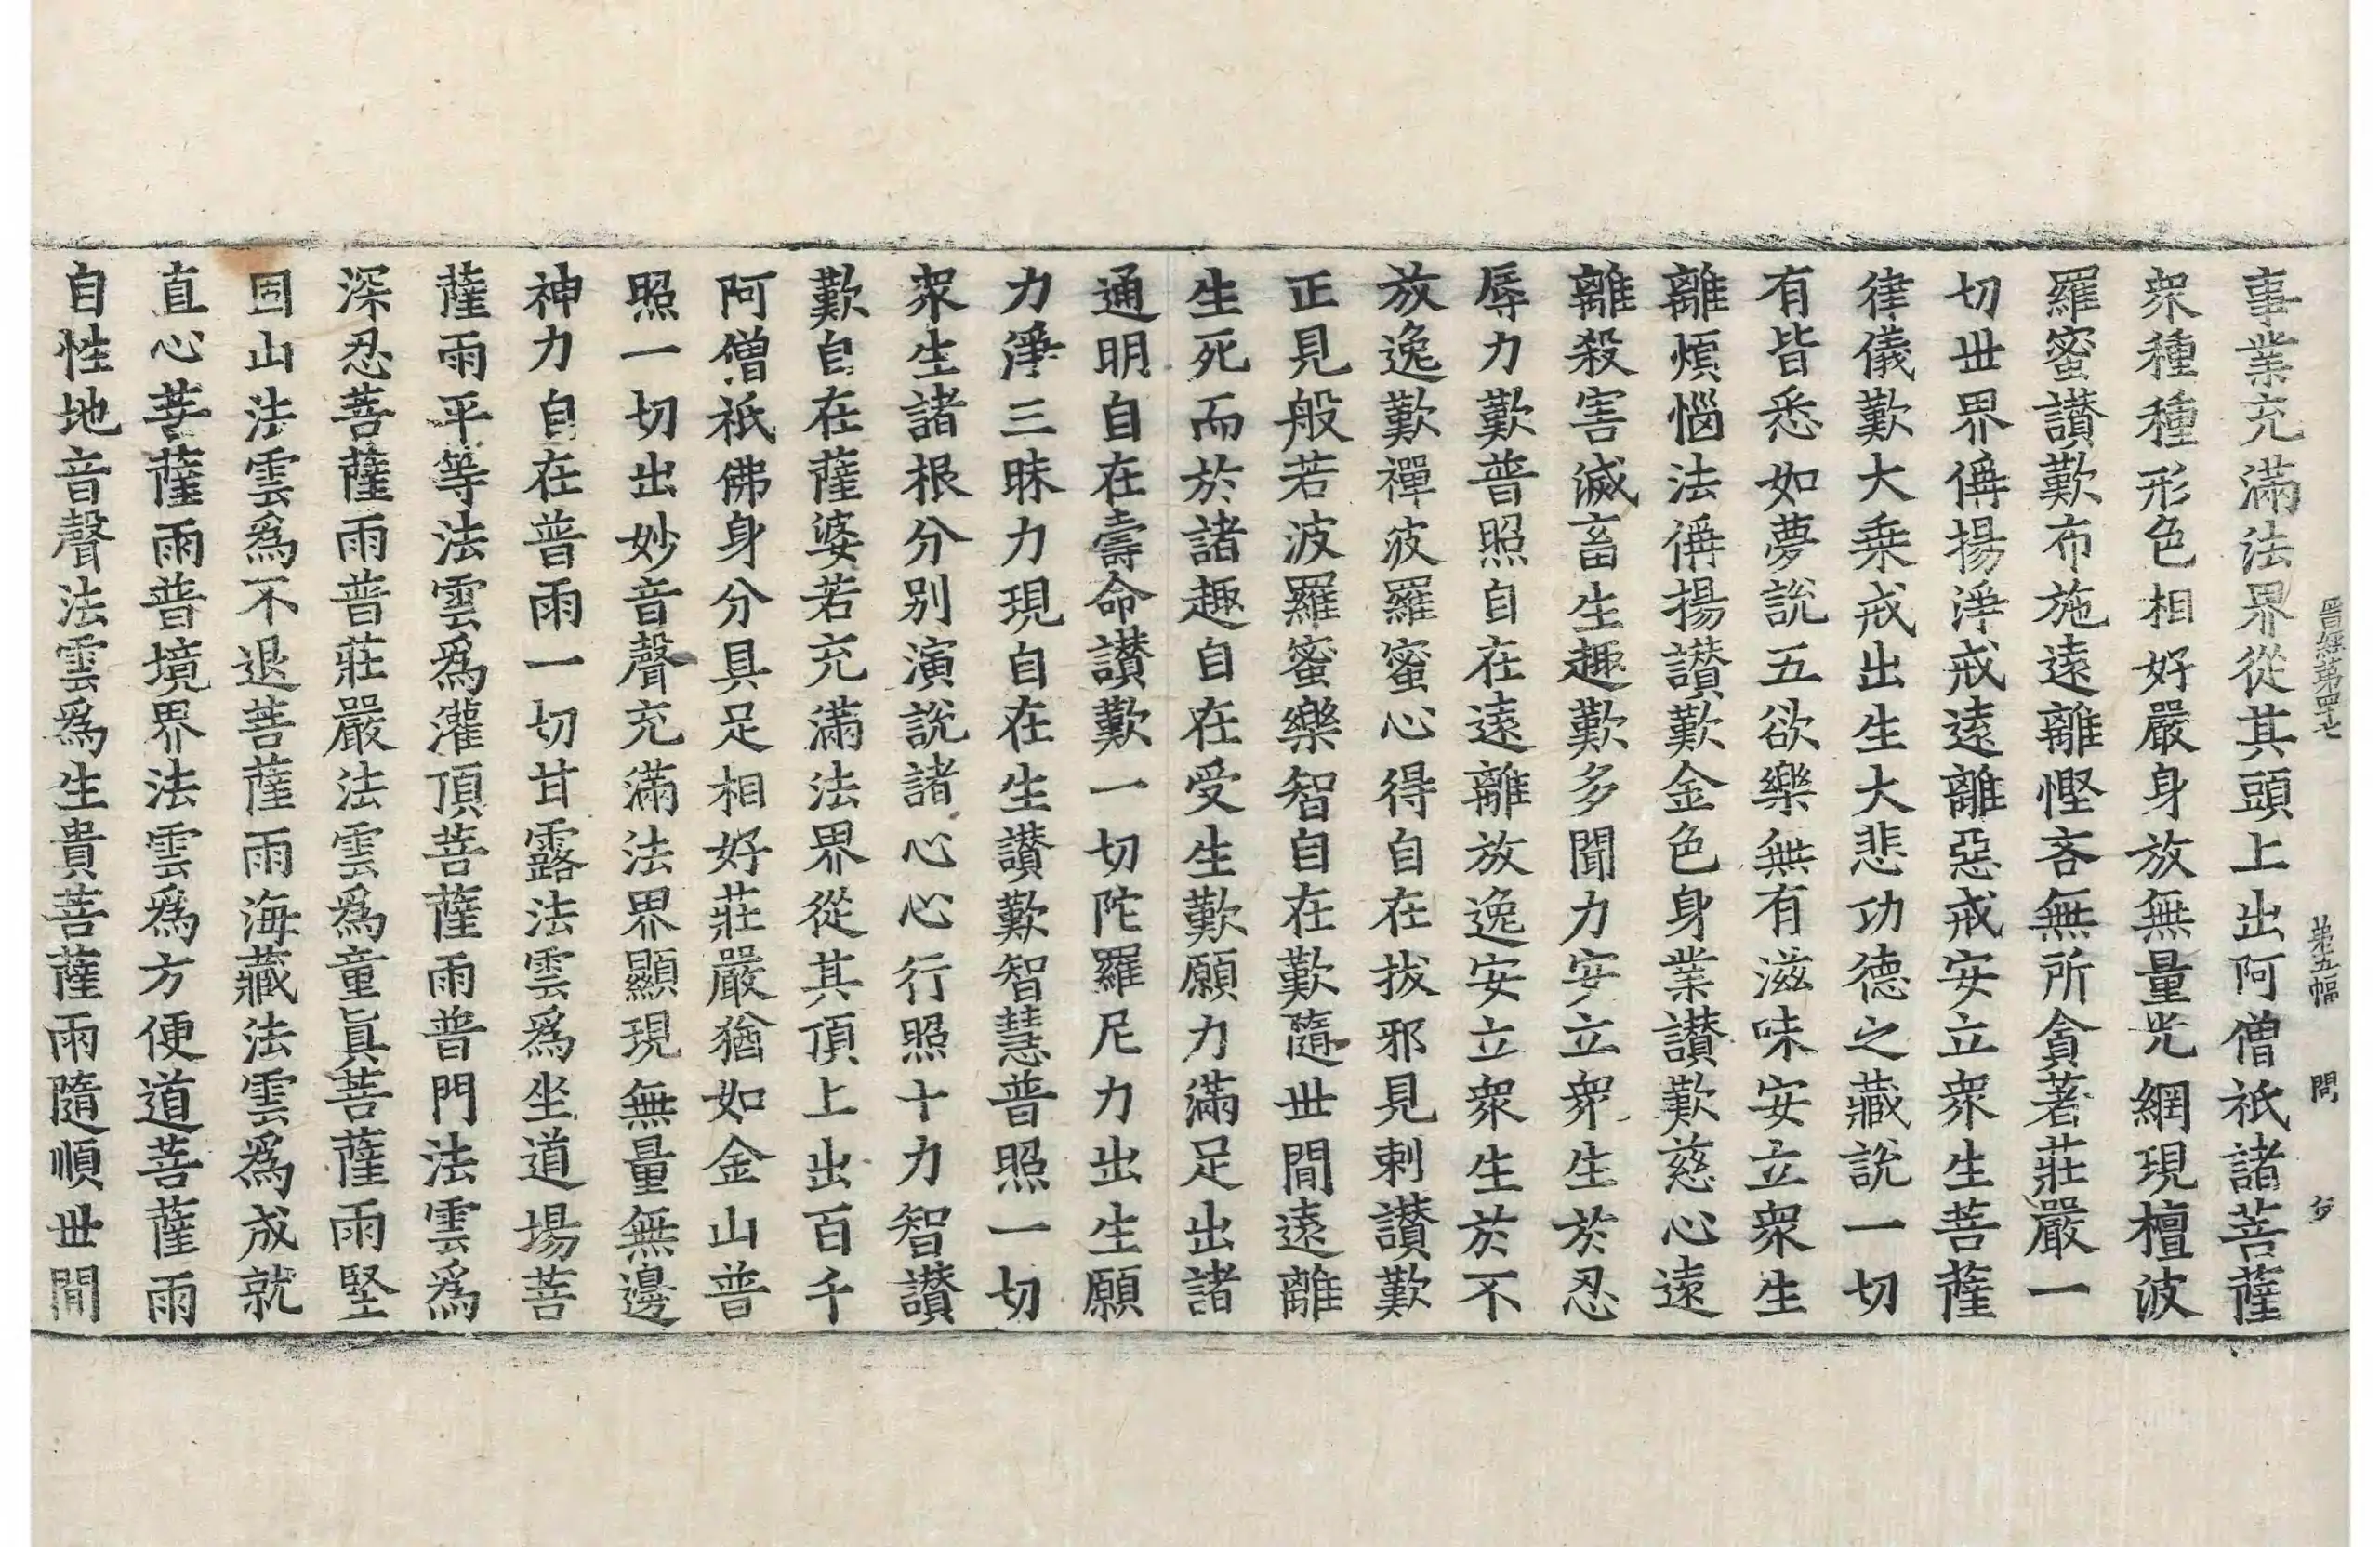 晋經第四十七 第五幅 問
事業充滿法界從其頭上出阿僧祇諸菩薩
衆種種形色相好嚴身放無量光網現檀波
羅蜜讃歎布施遠離慳吝無所貪著莊嚴一
切世界偁揚淨戒遠離惡戒安立衆生菩薩
律儀歎大乗戒出生大悲功德之藏說一切
有皆悉如夢說五欲樂無有滋味安立衆生
離煩惱法偁揚讃歎金色身業讃歎慈心遠
離殺害滅畜生趣歎多聞力安立衆生於忍
辱力歎普照自在遠離放逸安立衆生於不
放逸歎禪波羅蜜心得自在拔邪見剌讃歎
正見般若波羅蜜樂智自在歎隨世閒遠離
生死而於諸趣自在受生歎願力滿足出諸
通明自在壽命讃歎一切陀羅尼力出生願
力淨三昧力現自在生讃歎智慧普照一切
衆生諸根分別演說諸心心行照十力智讃
歎自在薩婆若充滿法界從其頂上出百千
阿僧祇佛身分具足相好莊嚴猶如金山普
照一切出妙音聲充滿法界顯現無量無邊
神力自在普雨一切甘露法雲爲坐道場菩
薩雨平等法雲爲灌頂菩薩雨普門法雲爲
深忍菩薩雨普莊嚴法雲爲童眞菩薩雨堅
固山法雲爲不退菩薩雨海藏法雲爲成就
直心菩薩雨普境界法雲爲方便道菩薩雨
自性地音聲法雲爲生貴菩薩雨隨順世閒